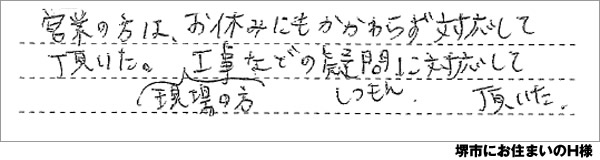 営業の方は、お休みにもかかわらず対応して
頂いた。工事などの疑問に対応して
現場の方 しつもん. 頂いた.
堺市にお住まいのH様